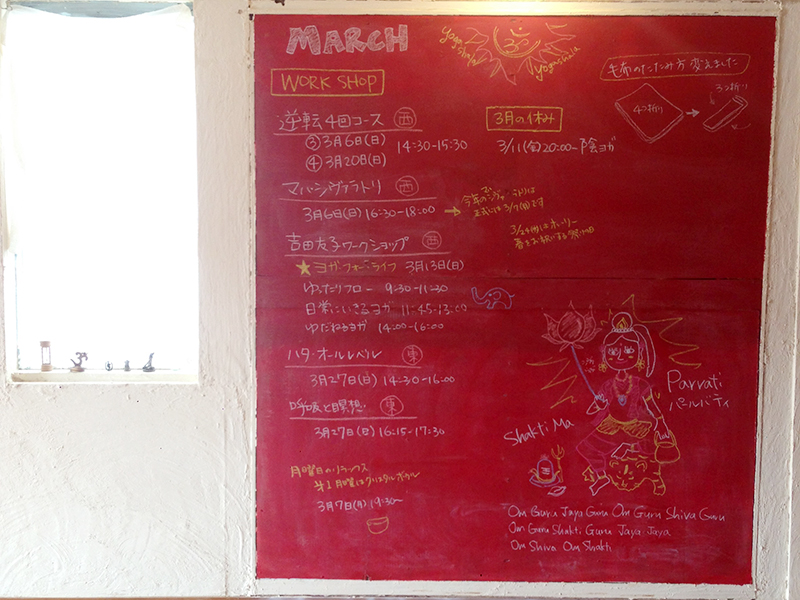 MARCH
yogashala
yogashala
WORK SHOP
逆転 4回コース 西
③ 3月6日(日)
④ 3月20日(日)
14:30-15:30
マハーシヴァラトリ 西
3月6日(日) 16:30-18:00
吉田友子ワークショップ 西
★ヨガ・フォー・ライフ 3月13日(日)
ゆったりフロー 9:30-11:30
日常にいきるヨガ 11:45-13:00
ゆだねるヨガ 14:00-16:00
ハタ・オールレベル 東
3月27日(日) 14:30-16:00
呼吸と瞑想 東
3月27日(日) 16:15-17:30
月曜日のリラックス
第1月曜はクリスタルボウル
3月7日(月) 19:30~
毛布のたたみ方 変えました
4つ折り
3つ折り
3月の休み
3/11(金) 20:00~ 陰ヨガ
正式には 3/7(月)です
春をお祝いする
Parvati
パールバティ
Shakti Ma
Om Guru Jaya Guru Om Guru Shiva Guru
Om Guru Shakti Guru Jaya Jaya
Om Shiva Om Shakti